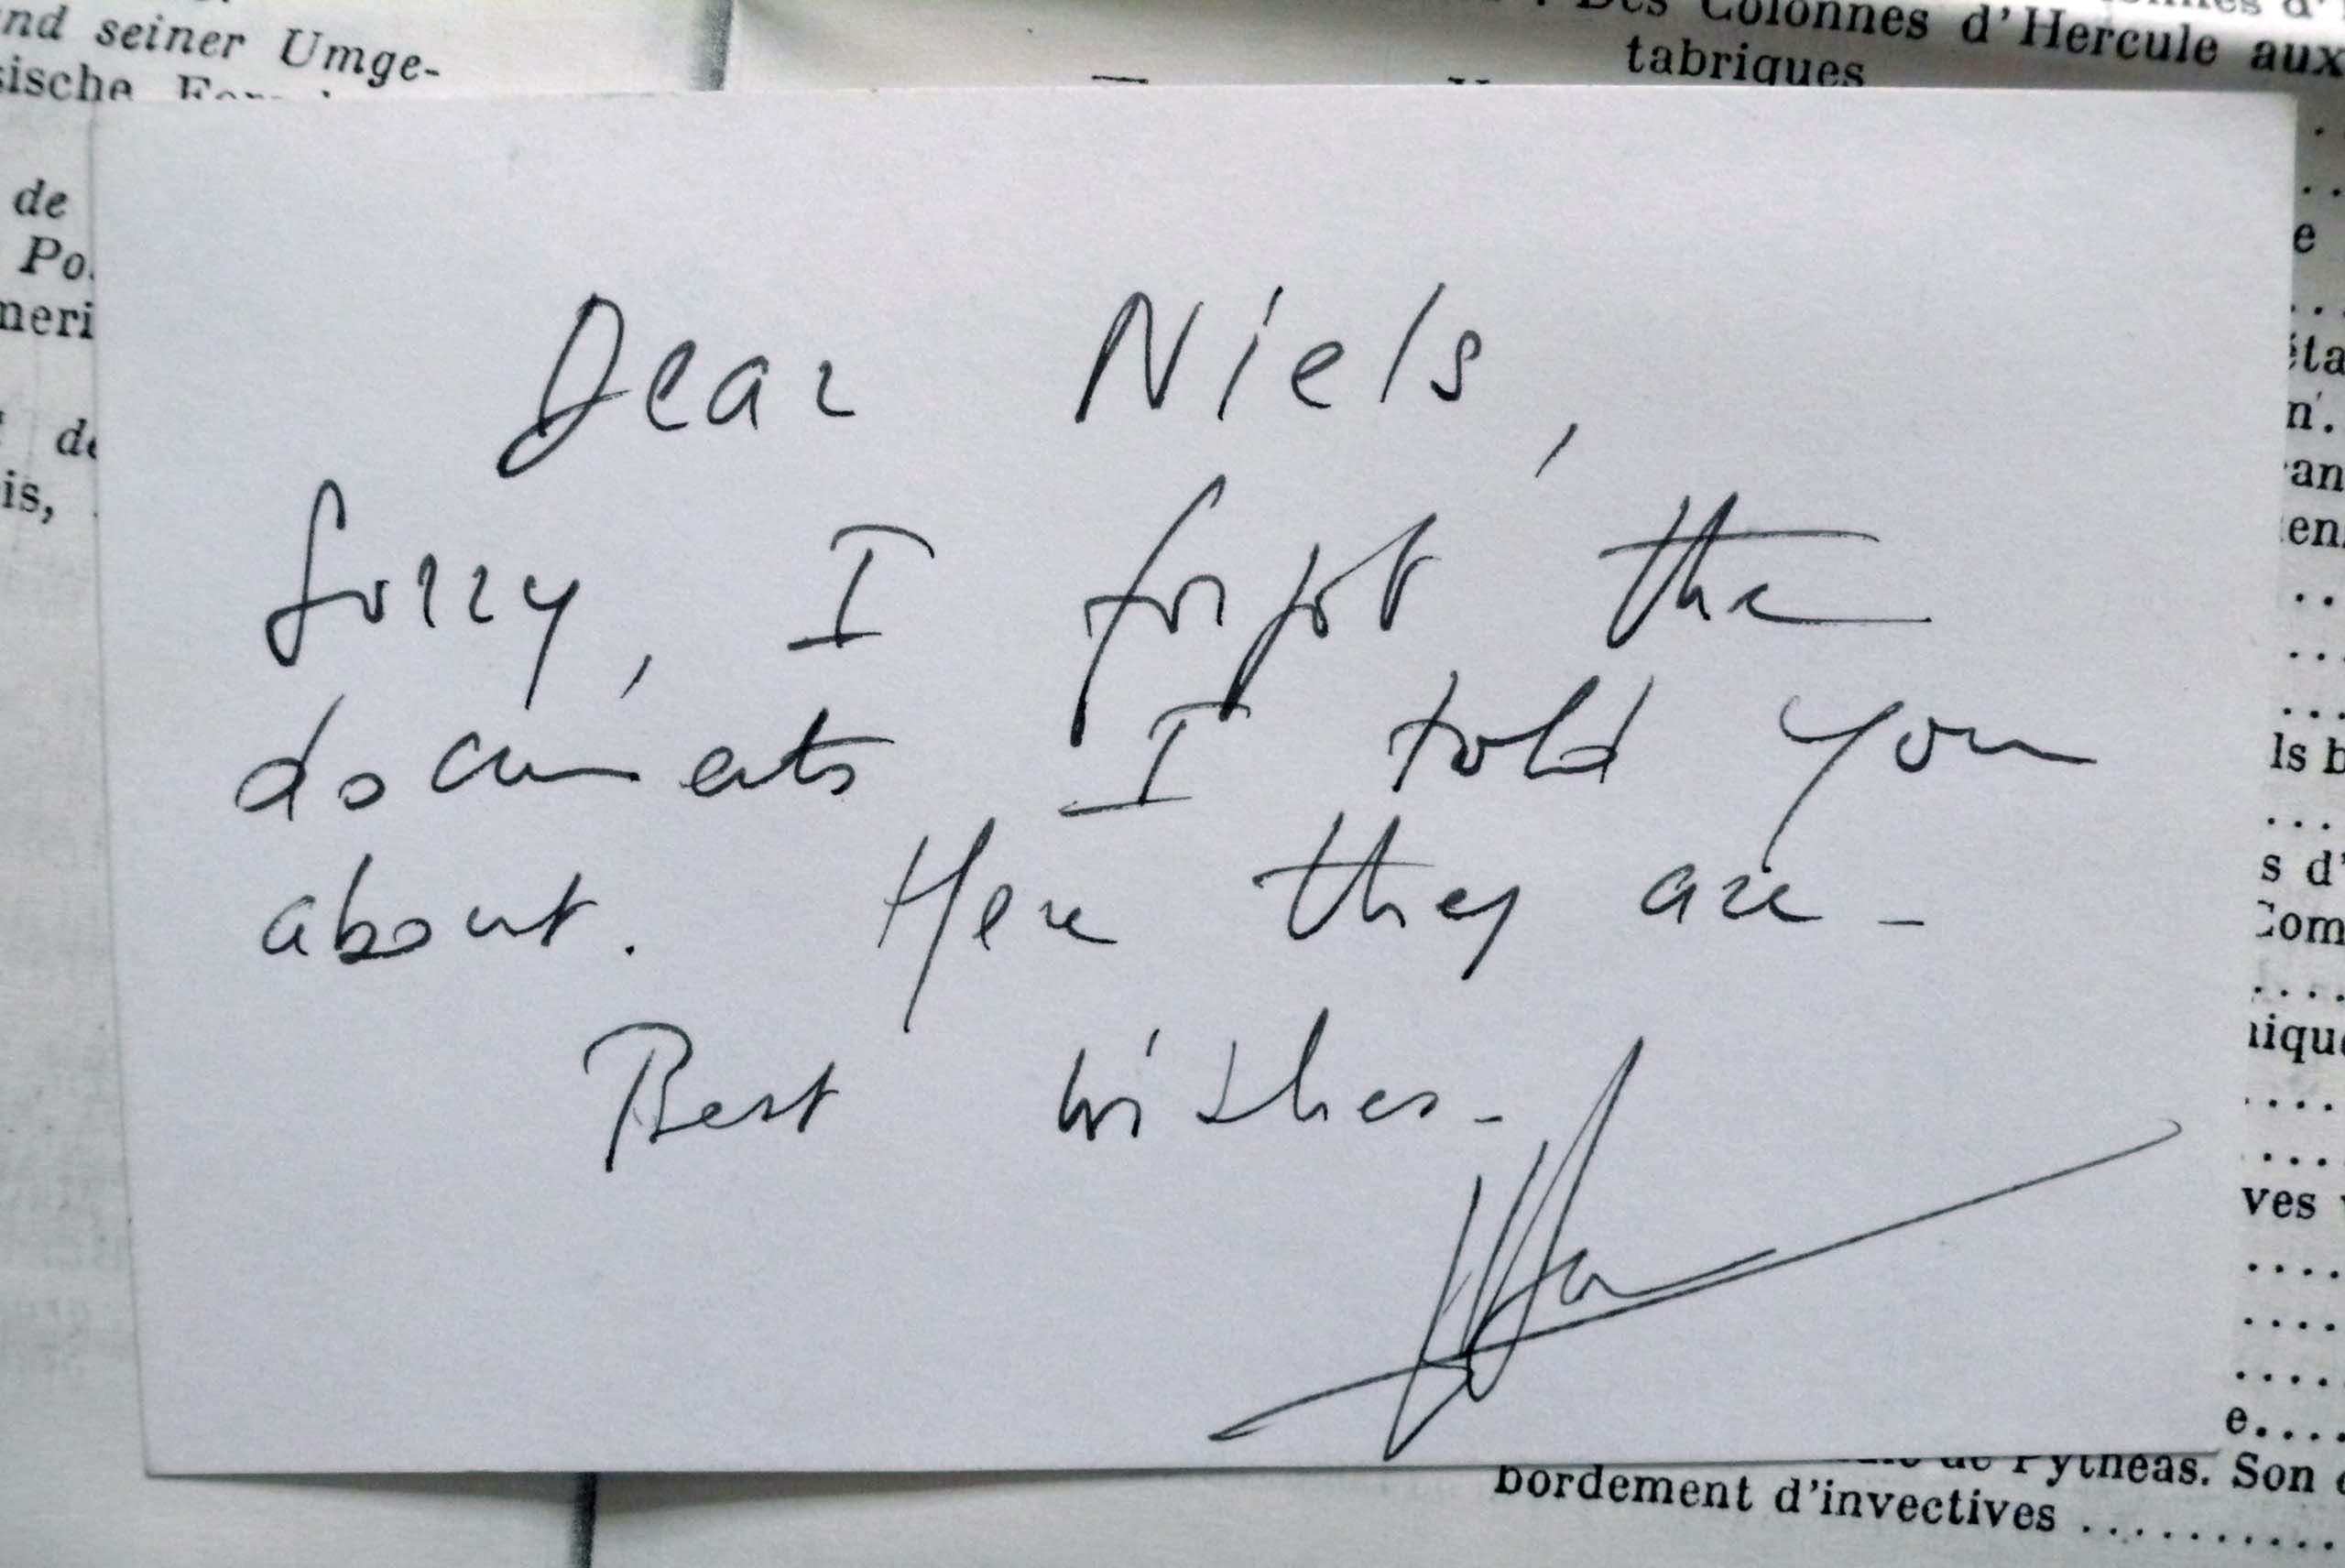 nd seiner Umge-
sische
de
Po
meri
de
is,
Des Colonnes d'Hercule aux
tabriques
Dear Niels,
Sorry, I forgot the
documents I told you
about. Here they are -
Best wishes -
e
éta
n'.
an
en
ls b
s d'
Com
nique
ves
e....
de Pythéas. Son
bordement d'invectives ..........